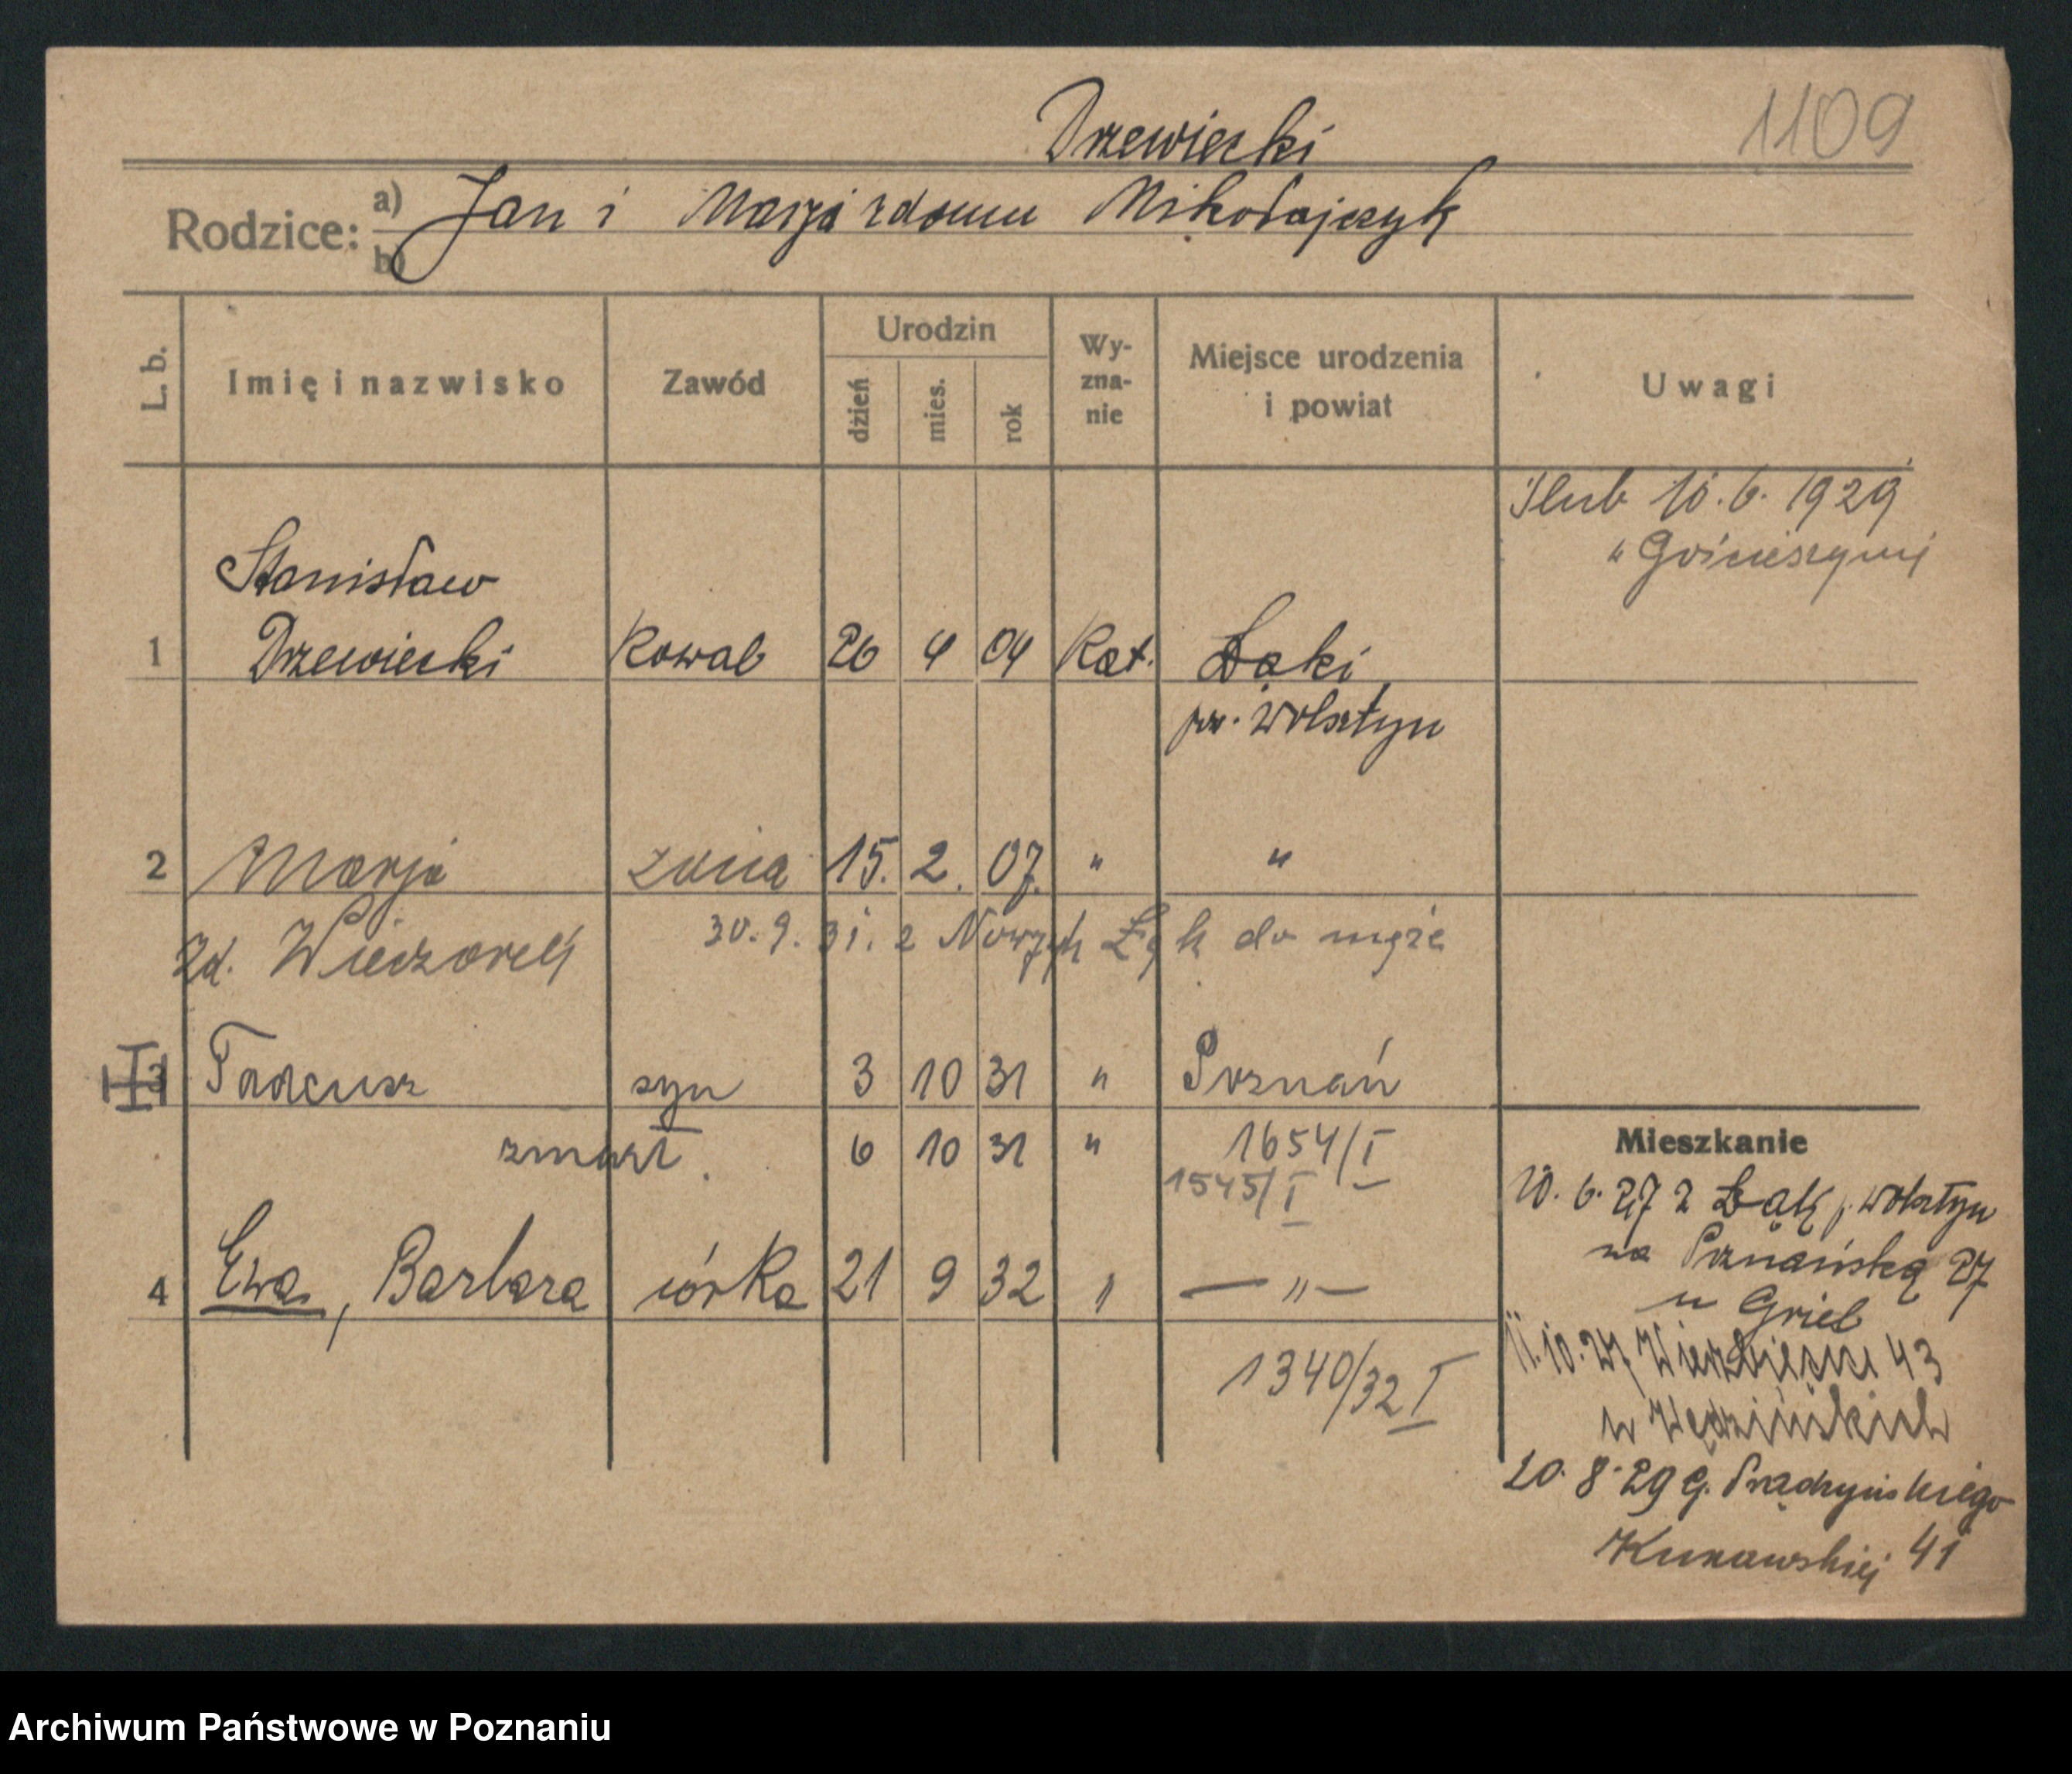 1109
Drzewiecki
Rodzice: a) b) Jan i Marja zdomu Mikołajczyk
L. b. Imię i nazwisko Zawód Urodzin dzień mies. rok Wy-zna-nie Miejsce urodzenia i powiat Uwagi
Ślub 10. 6. 1929
" Gościeszynie
Stanisław
1 Drzewiecki Kowal 26 4 04 Kat. Łąki
pw. Wolsztyn
2 Marja żona 15. 2. 07. " "
zd. Wieczorek 30. 9. 31. z Nowych Łąk do męża
3 Tadeusz syn 3 10 31 " Poznań
zmarł. 6 10 31 " 1654/I
1545/I
4 Ewa, Barbara córka 21 9 32 " — " —
1340/32 I
Mieszkanie
10. 6. 27 z Łąk p. Wolsztyn
na Poznańską 27
u Griel
11. 10. 27 Wierzbięcice 43
u Wędzińskich
20. 8. 29 G. Prądzyńskiego
41
Archiwum Państwowe w Poznaniu